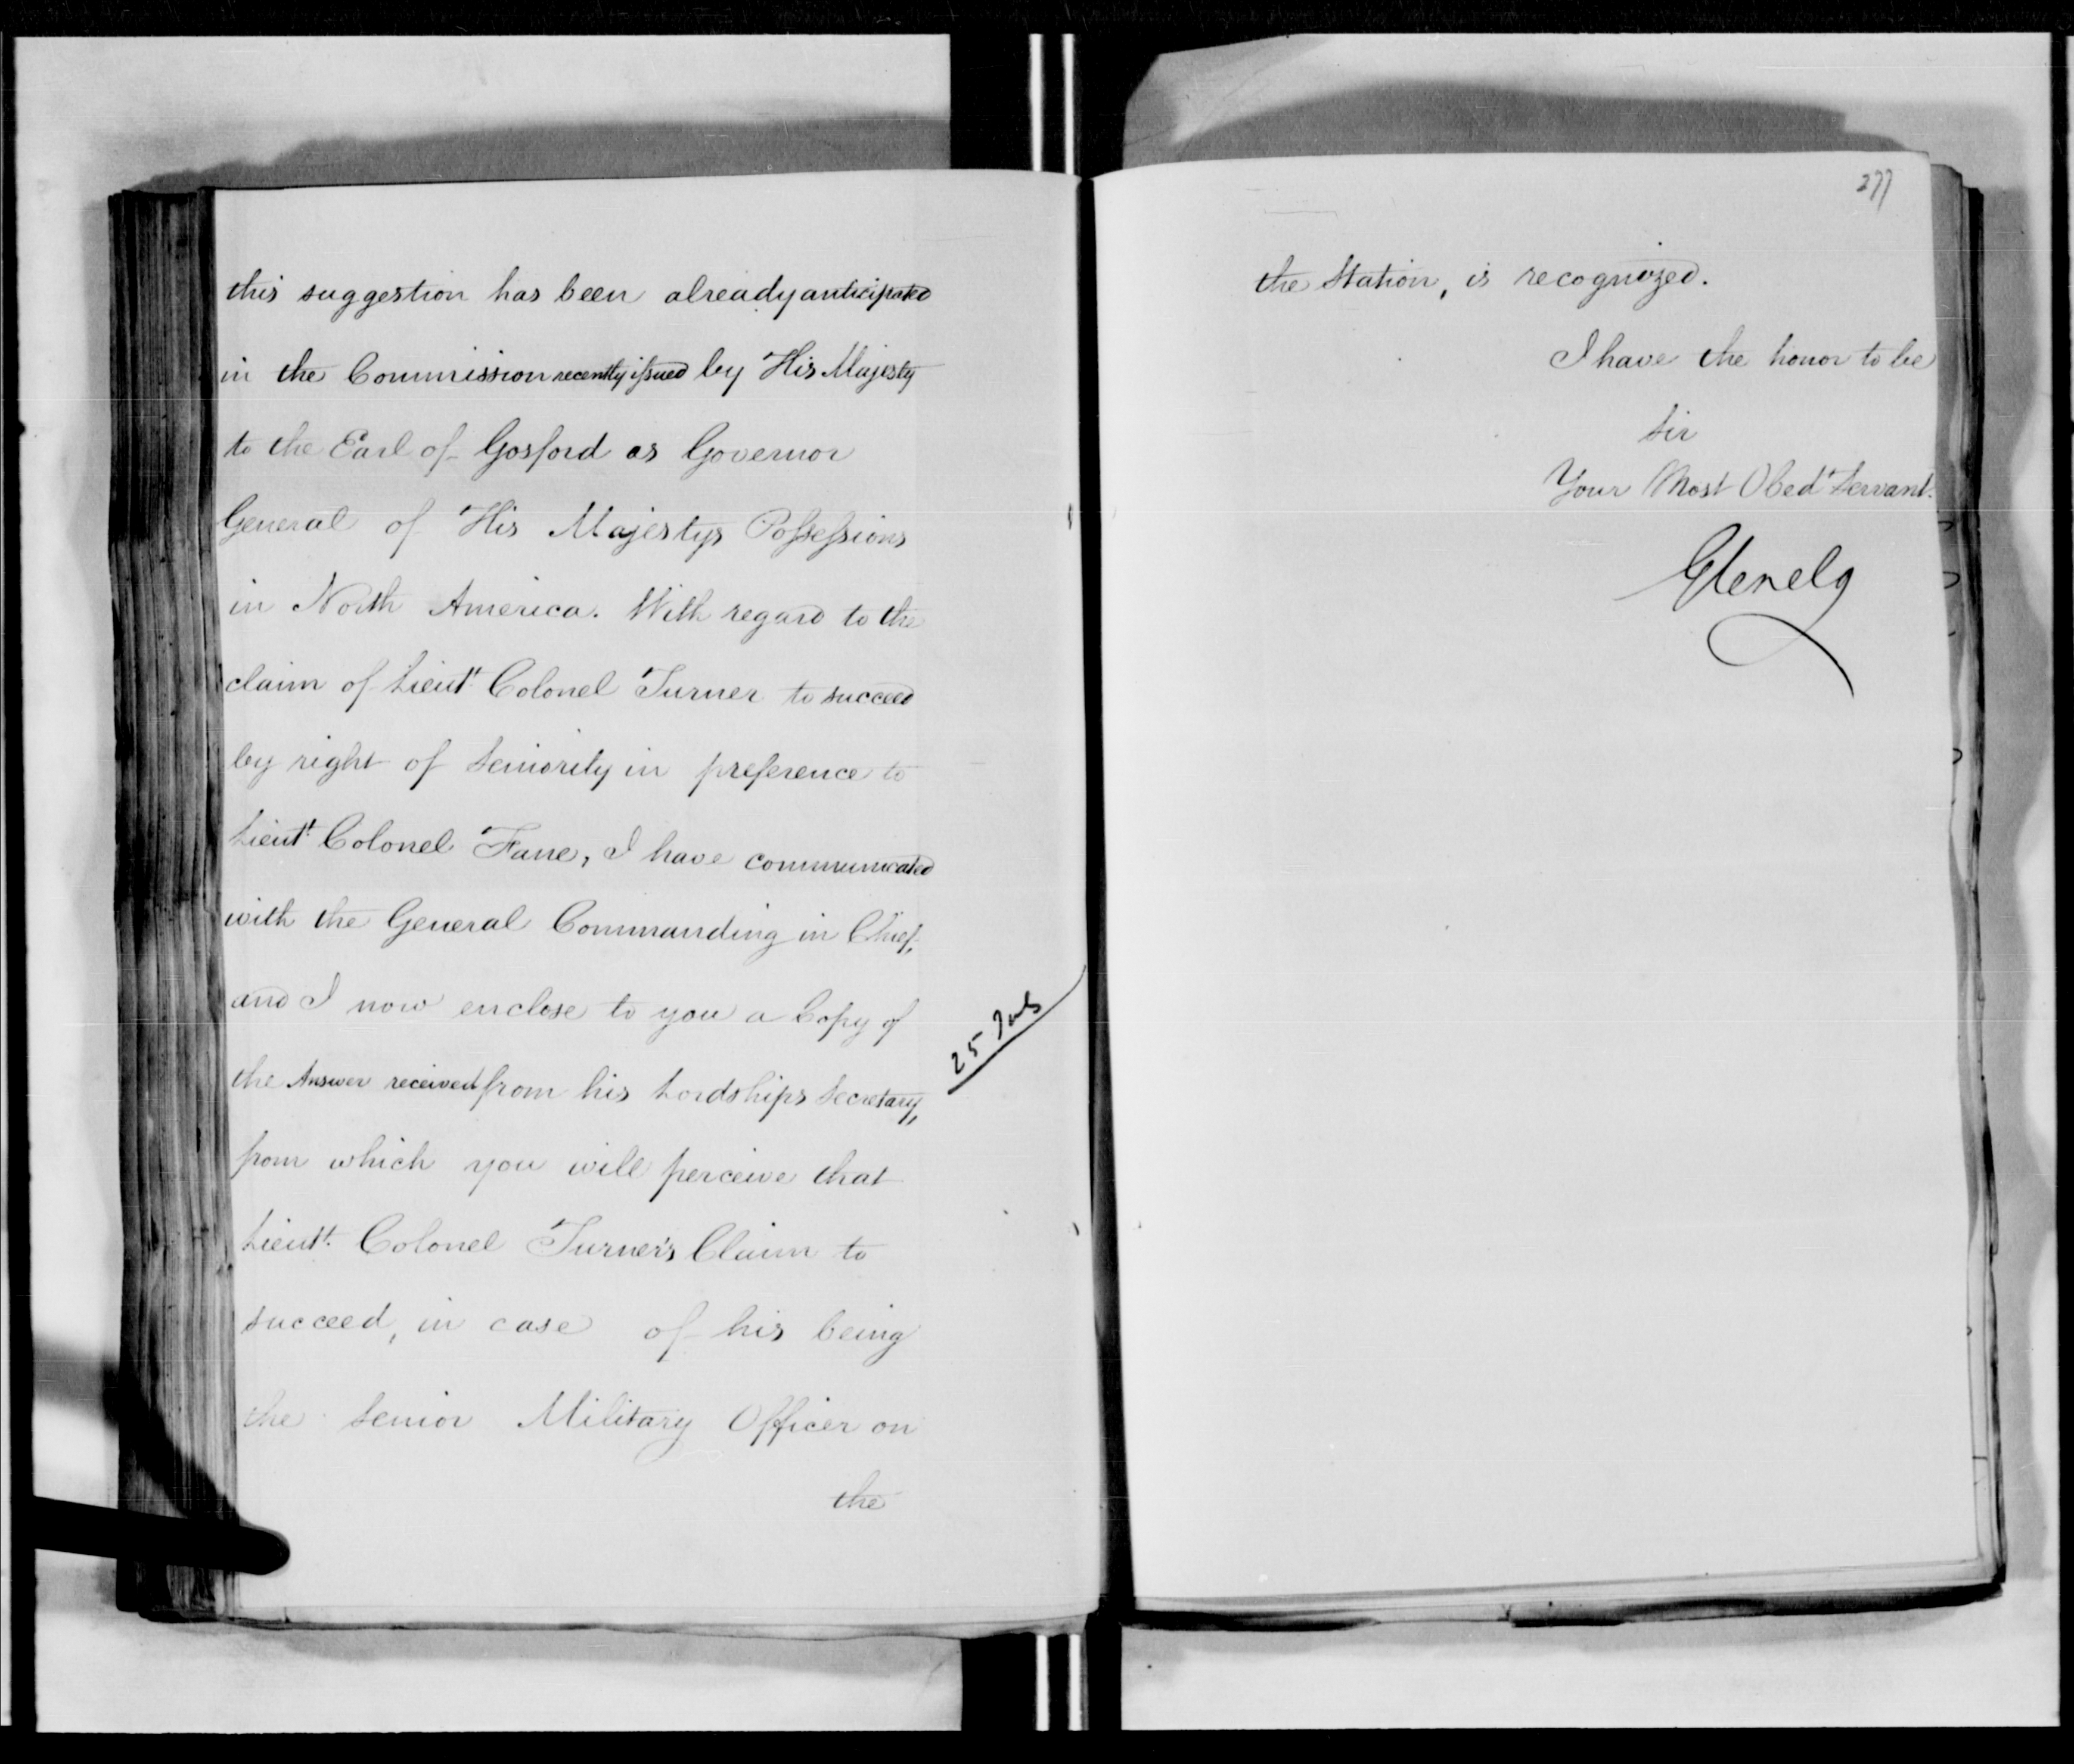 this suggestion has been already anticipated
in the Commission recently issued by His Majesty
to the Earl of Gosford as Governor
General of His Majestys Possessions
in North America. With regard to the
claim of Lieut.t Colonel Turner to succeed
by right of Seniority in preference to
Lieut.t Colonel Fane, I have communicated
with the General Commanding in Chief,
and I now enclose to you a Copy of
the Answer received from his Lordships Secretary,
from which you will perceive that
Lieut.t Colonel Turner's Claim to
succeed, in case of his being
the Senior Military Officer on
the
25
277
the Station, is recognized.
I have the honor to be
Sir
Your Most Obed.t Servant.
Glenelg